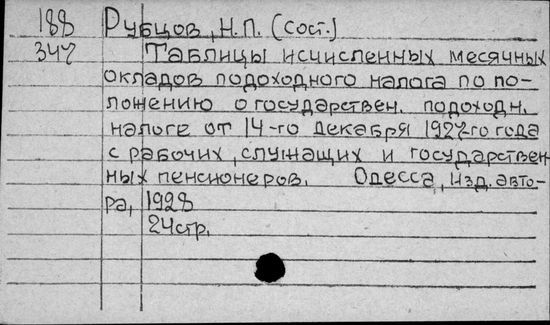 188 Рубцов, Н.П. (сост.)
347 Таблицы исчисленных месячных
окладов подоходного налога по по-
ложению о государствен. подоходн.
налоге от 14-го декабря 1927-го года
с рабочих, служащих и государствен-
ных пенсионеров. Одесса, изд. авто-
ра, 1928
24стр.